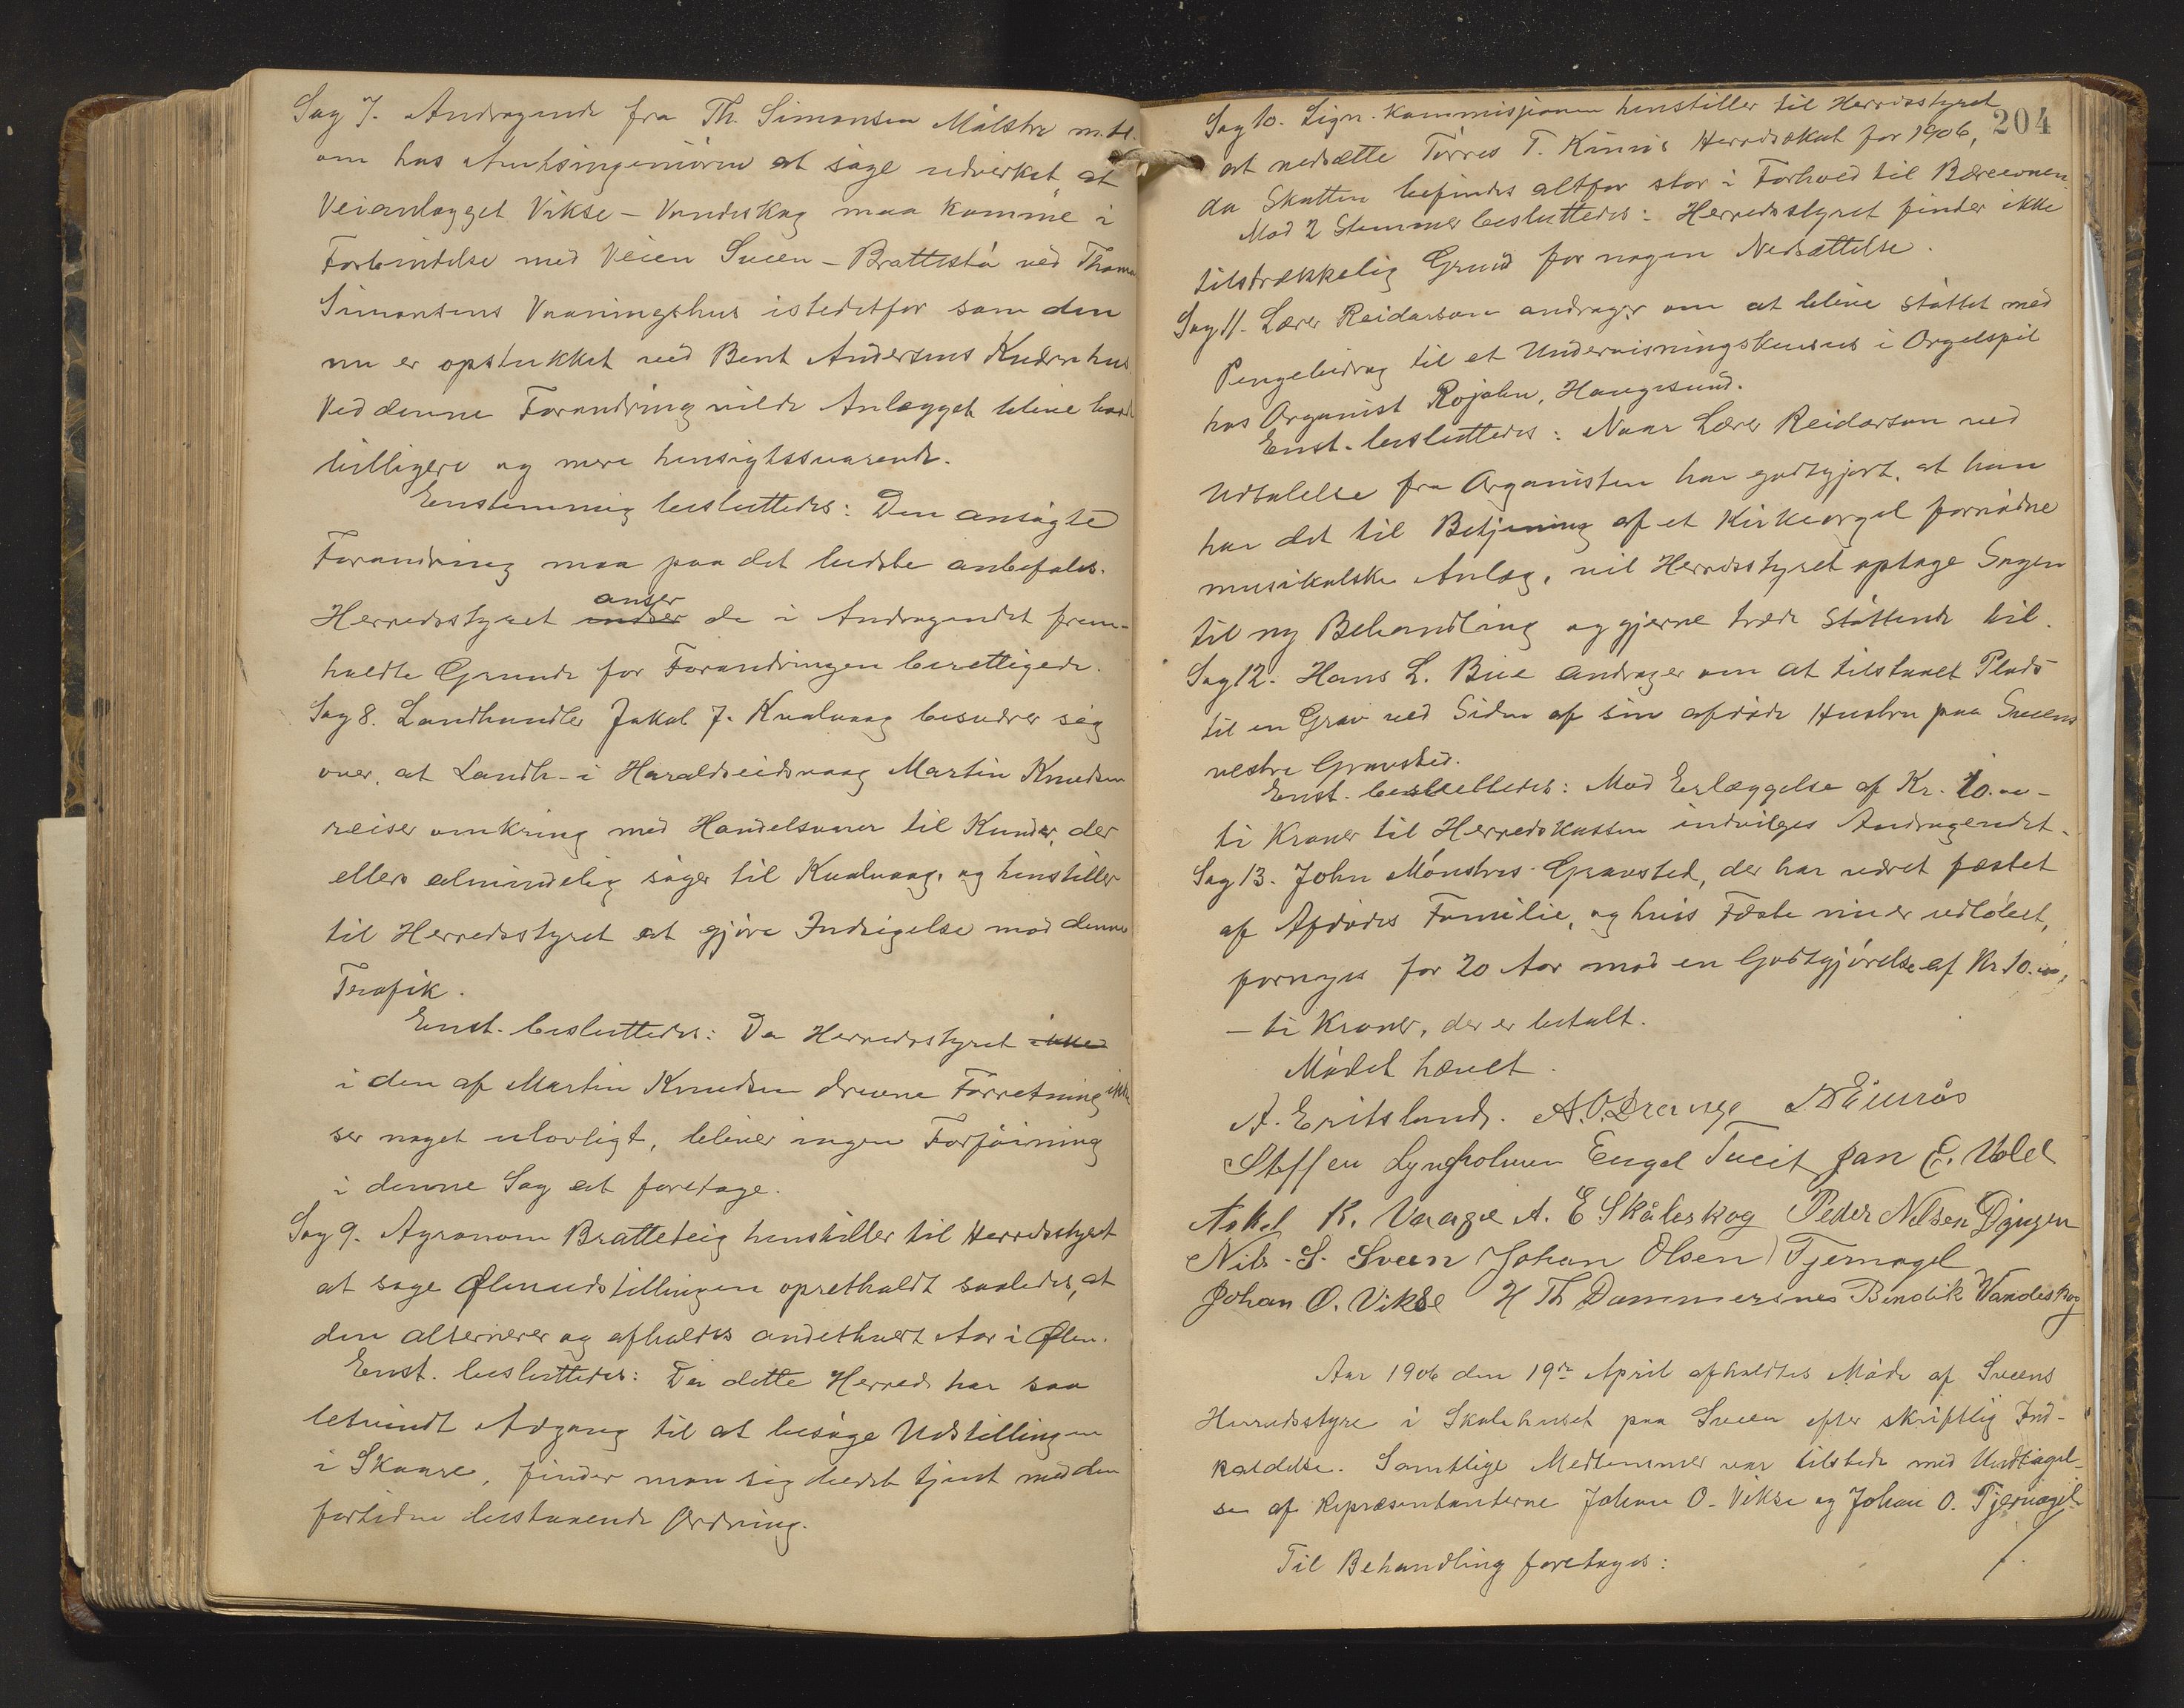 Sag 7. Andragende fra Th. Simonsen Målstre m. fl.
om hos Amtsingeniøren at søge udvirket, at
Veianlægget Vikse - Vandeskog maa komme i
Forbindelse med Veien Sveen - Brattestø ved Thomas
Simonsens Vaaningshus istedetfor som den
nu er opstukket ved Bent Andersens
Ved denne Forandring vilde Anlægget blive baade
billigere og mere hensigtssvarende.
Enstemmig besluttedes: Den ansøgte
Forandring maa paa det bedste anbefales.
anser
Herredsstyret indser de i Andragendet frem-
holdte Grunde for Forandringen berettigede.
Sag 8. Landhandler Jakob J. Kvalvaag besværer sig
over, at Landh. i Haraldseidsvaag Martin Knudsen
reiser omkring med Handelsvarer til Kunder, der
ellers almindelig søger til Kvalvaag, og henstiller
til Herredsstyret at gjøre Indsigelse mod denne
Trafik.
Enst. besluttedes: Da Herredsstyret ikke
i den af Martin Knudsen drevne Forretning ikke
ser noget ulovligt, bliver ingen Forføining
i denne Sag at foretage.
Sag 9. Agronom Bratteteig henstiller til Herredsstyret
at søge Ølenudstillingen opretholdt saaledes, at
den alternerer og afholdes andethvert Aar i Ølen.
Enst. besluttedes: Da dette Herred har saa
letvindt Adgang til at besøge Udstillingen
i Skaare, finder man sig bedst tjent med den
fortiden bestaaende Ordning.
204
Sag 10. Lign. kommissionen henstiller til Herredsstyret
at nedsætte Tørres T. Kinns Herredsskat for 1906,
da Skatten befindes altfor stor i Forhold til Bæreevnen.
Mod 2 Stemmer besluttedes: Herredsstyret finder ikke
tilstrækkelig Grund for nogen Nedsættelse.
Sag 11. Lærer Reidarson andrager om at blive støttet med
Pengebidrag til et Undervisningskursus i Orgelspil
hos Organist Rojahn, Haugesund.
Enst. besluttedes: Naar Lærer Reidarson ved
Udtalelse fra Organisten har godtgjort, at han
har det til Betjening af et Kirkeorgel fornødne
musikalske Anlæg, vil Herredsstyret optage Sagen
til ny Behandling og gjerne træde støttende til.
Sag 12. Hans L. Bue andrager om at tilstaaet Plads
til en Grav ved Siden af sin afdøde Hustru paa Sveens
vestre Gravsted.
Enst. besluttedes: Mod Erlæggelse af Kr. 10.00 -
ti Kroner til Herredskassen indvilges Andragendet.
Sag 13. John Mønstres Gravsted, der har været fæstet
af Afdødes Familie, og hvis Fæste nu er udløbet,
fornyes for 20 Aar mod en Godtgjørelse af Kr 10.00,
- ti Kroner, der er betalt.
Mødet hævet.
A. Eritsland. A. O. Drange
Steffen Lyngholmen Engel Tveit Jan E. Vold
Askel K. Vaage A. E Skåleskog Peder Nilsen Døngen
Nils. S. Sveen Johan Olsen Tjernagel
Johan O. Vikse H Th Dommersnes Bendik Vandeskog
Aar 1906 den 19de April afholdtes Møde af Sveens
Herredsstyre i Skolehuset paa Sveen efter skriftlig Ind-
kaldelse. Samtlige Medlemmer var tilstede med Undtagel-
se af Repræsentanterne Johan O. Vikse og Johan O. Tjernagel.
Til Behandling foretoges: